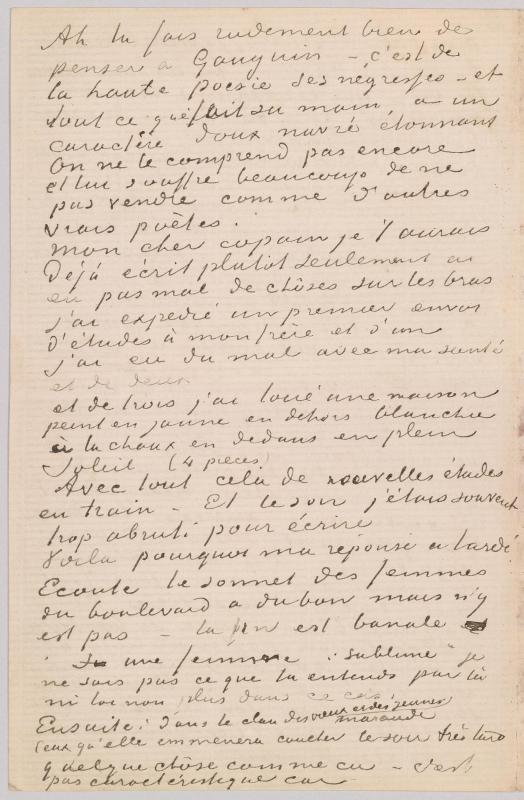 Ah tu fais rudement bien de
penser à Gauguin – c'est de
la haute poesie ses négresses – et
tout ce que fait sa main a un
caractère doux navré étonnant
On ne le comprend pas encore
et lui souffre beaucoup de ne
pas vendre comme d'autres
vrais poètes.
Mon cher copain je t'aurais
Déjà écrit plutôt seulement ai
eu pas mal de chôses sur les bras
j'ai expedié un premier envoi
d'études à mon frère et d'un
j'ai eu du mal avec ma santé
et de deux
et de trois j'ai loué une maison
peint en jaune en dehors blanchie
à la chaux en dedans en plein
Soleil (4 pieces)
Avec tout cela de nouvelles études
en train – Et le soir j'étais souvent
trop abruti pour écrire
Voila pourquoi ma réponse a tardé.
Ecoute le sonnet des femmes
du boulevard a du bon mais n'y
est pas – la fin est banale
une femme "sublime" je
ne sais pas ce que tu entends par là
ni toi non plus dans ce cas
Ensuite: Dans le clan des vieux et des jeunes
maraude
Ceux qu'elle emmenera coucher le soir très tard
quelque chôse comme ca – c'est
pas caractéristique car